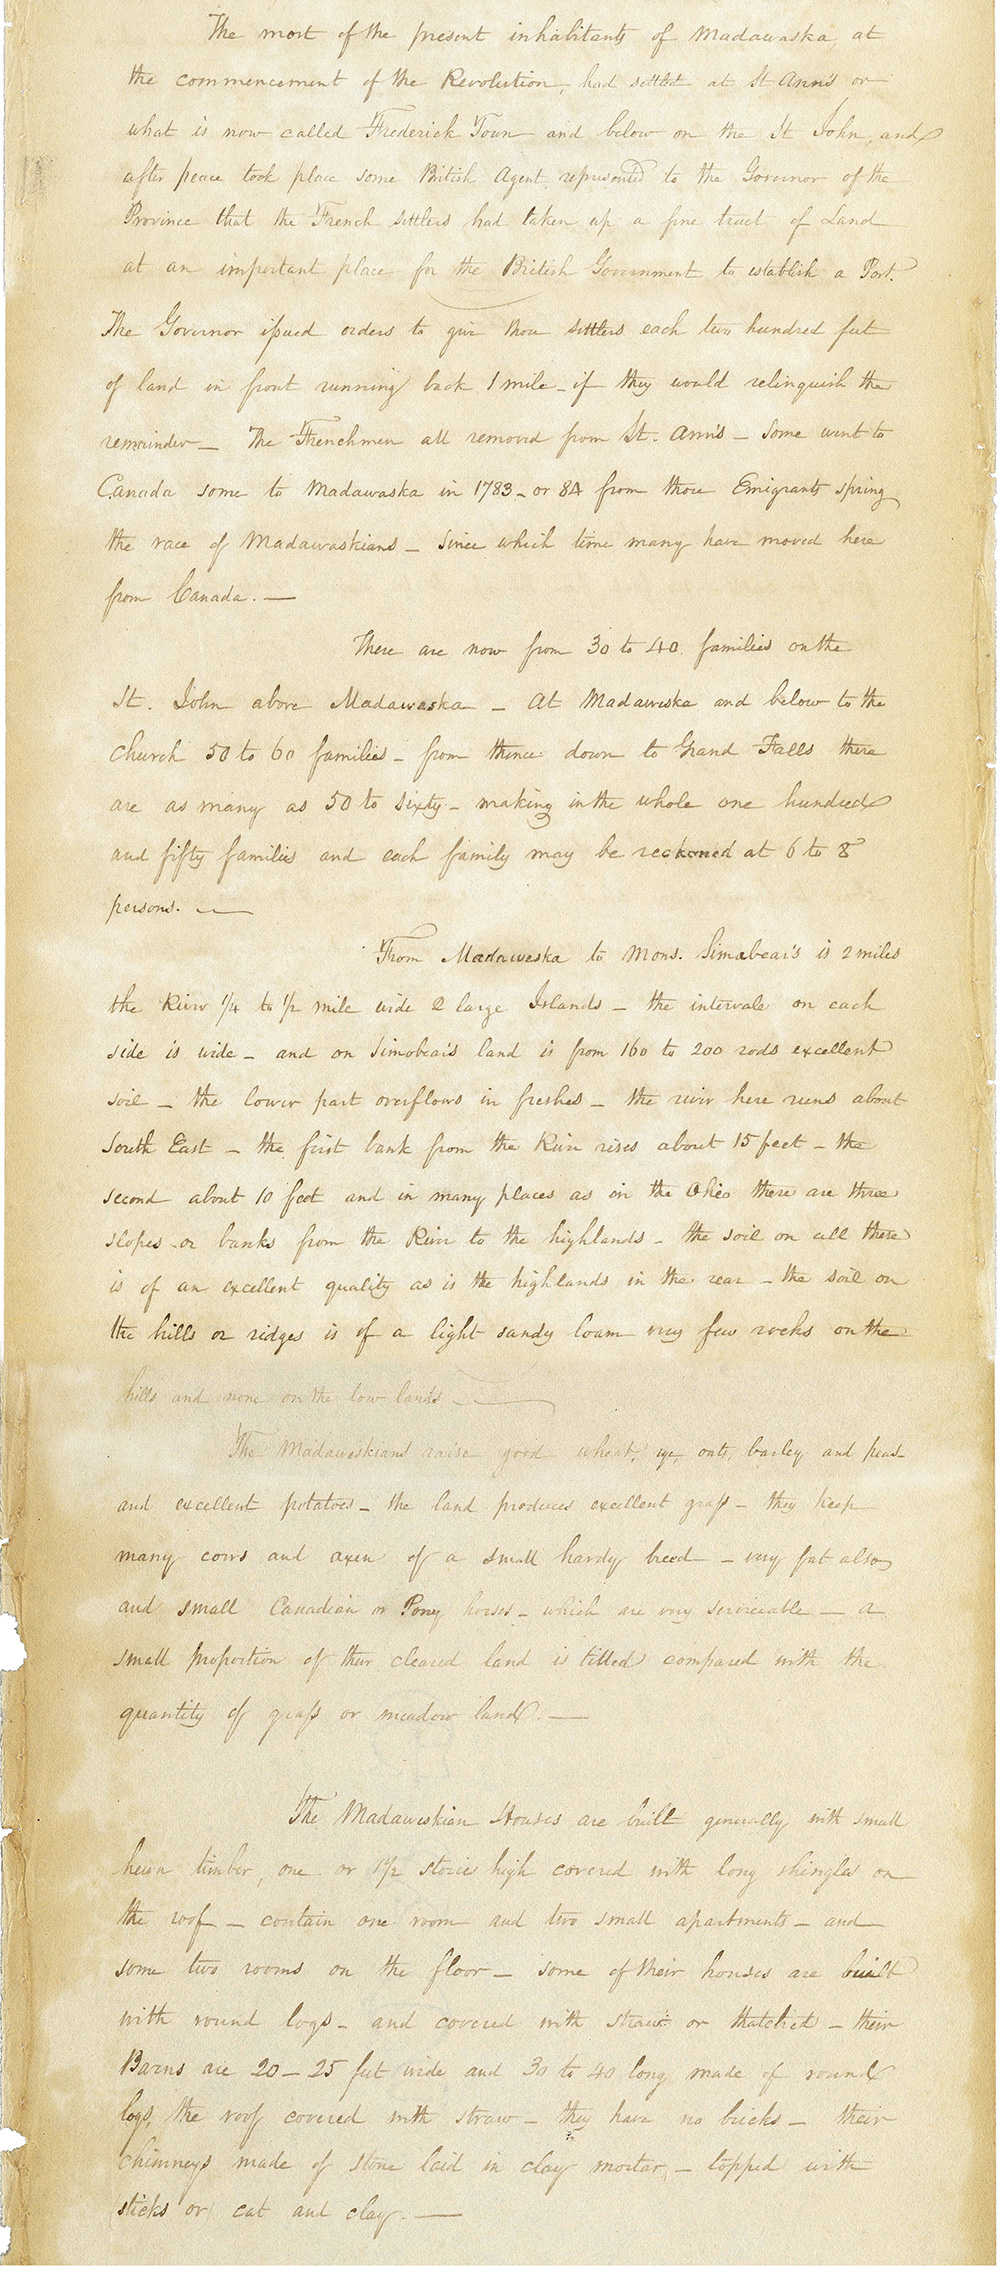 The most of the present inhabitants of Madawaska, at
the commencement of the Revolution, had settled at St Ann's or
what is now called Frederick Town and below on the St John, and
after peace took place some British Agent represented to the Governor of the
Province that the French settlers had taken up a fine tract of Land
at an important place for the British Government to establish a Post.
The Governor issued orders to give those settlers each two hundred feet
of land in front running back 1 mile - if they would relinquish the
remainder - The Frenchmen all removed from St. Ann's - Some went to
Canada some to Madawaska in 1783 - or 84 from those Emigrants spring
the race of Madawaskians - Since which time many have moved here
from Canada. -
There are now from 30 to 40 families on the
St. John above Madawaska - At Madawaska and below to the
Church 50 to 60 families - from thence down to Grand Falls there
are as many as 50 to sixty - making in the whole one hundred
and fifty families and each family may be reckoned at 6 to 8
persons. -
From Madaweska to Mons. Simabear's is 2 miles
the River 1/4 to 1/2 mile wide 2 large Islands - the intervale on each
side is wide - and on Simobear's land is from 160 to 200 rods excellent
soil - the lower part overflows in freshes - the river here runs about
South East - the first bank from the River rises about 15 feet - the
second about 10 feet and in many places as on the Ohio there are three
slopes or banks from the River to the highlands - the soil on all these
is of an excellent quality as is the highlands in the rear - the soil on
the hills or ridges is of a light sandy loam very few rocks on the
hills and none on the low lands -
The Madaweskians raise good wheat, rye, oats, barley and peas -
and excellent potatoes - the land produces excellent grass - they keep
many cows and oxen of a small hardy breed - very fat also,
and small Canadian or Poney horses - which are very serviceable - a
small proportion of their cleared land is tilled compared with the
quantity of grass or meadow land. -
The Madaweskian Houses are built generally with small
hewn timber, one or 1 1/2 stories high covered with long shingles on
the roof - contain one room and two small apartments - and
some two rooms on the floor - some of their houses are built
with round logs - and covered with straw or thatched - their
Barns are 20 - 25 feet wide and 30 to 40 long made of round
logs, the roof covered with straw - they have no bricks - their
chimneys made of stone laid in clay mortar, - topped with
(sticks or) cat and clay. -